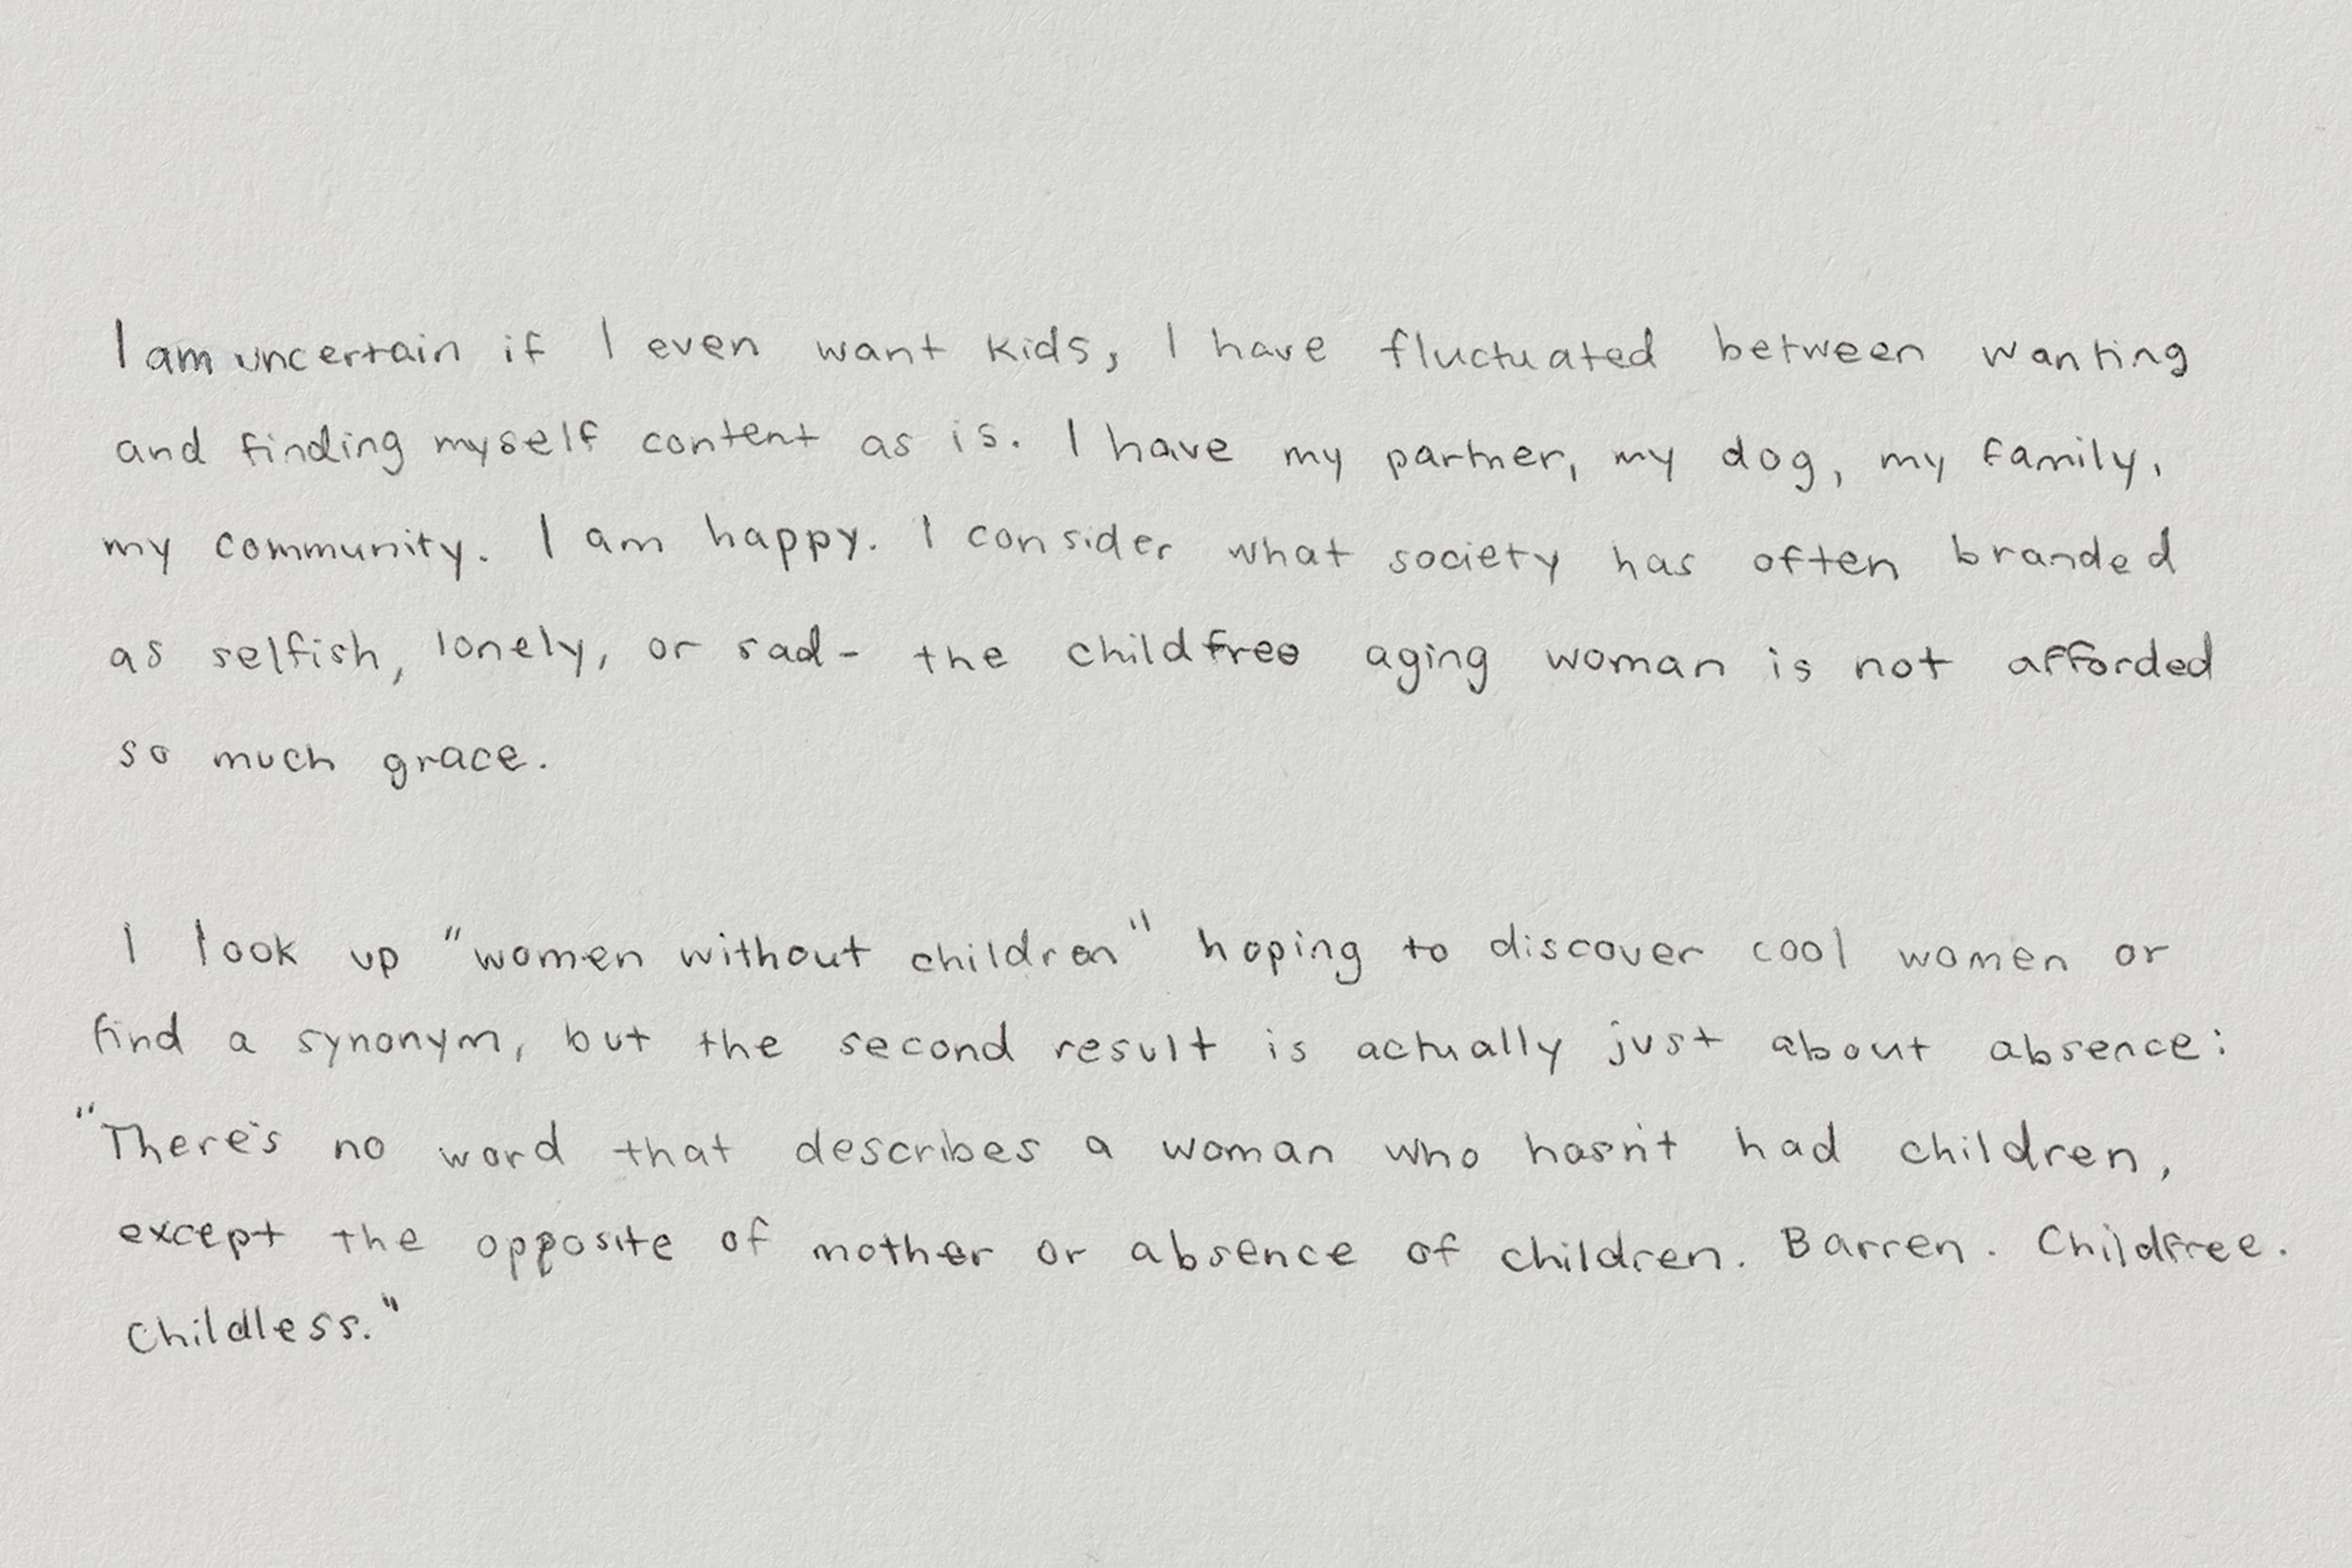 I am uncertain if I even want kids, I have fluctuated between wanting
and finding myself content as is. I have my partner, my dog, my family,
my community. I am happy. I consider what society has often branded
as selfish, lonely, or sad- the childfree aging woman is not afforded
so much grace.
I look up "women without children" hoping to discover cool women or
find a synonym, but the second result is actually just about absence:
"There's no word that describes a woman who hasn't had children,
except the opposite of mother or absence of children. Barren. Childfree.
Childless."